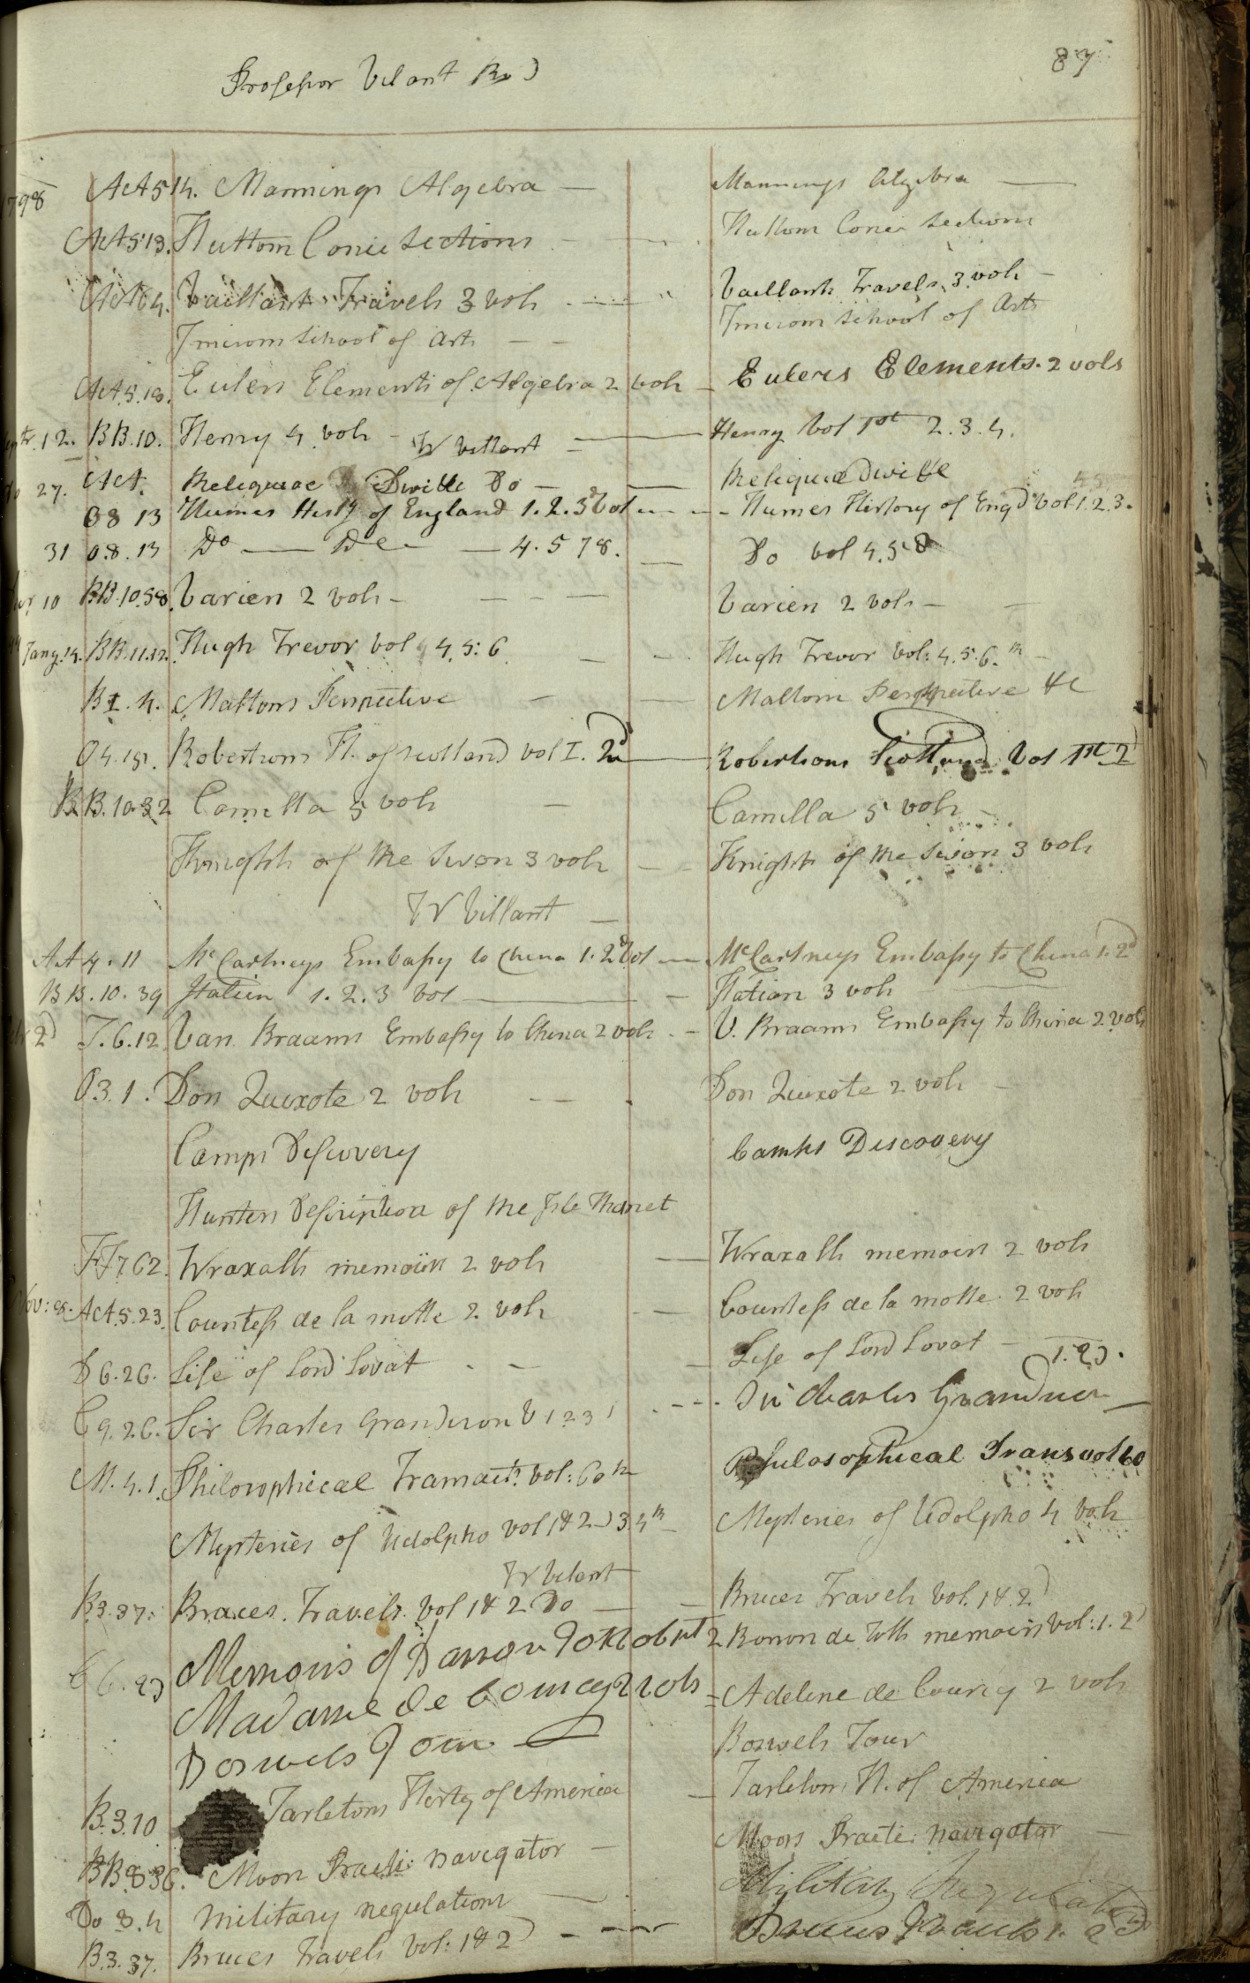 87
Professor Vilant
1798 AA 5 14. Mannings Algebra — Mannings Algebra —
AA 5 13. Huttons Conic Sections — Huttons Conic Sections
AA 6 4. Vaillants Travels 3 vols — Vaillants Travels, 3 vols —
Imisons School of Arts — — Imisons School of Arts
AA. 5. 18. Eulers Elements of Algebra 2 vols — Eulers Elements. 2 vols
12. BB. 10. Henry 4 vols — W Villant — Henry Vol 1st 2. 3. 4.
27. AA. Reliquiae Divillae Do — Reliquiae
08 13 Humes Histy of England 1. 2. 3d Vol — Humes History of Engd Vol 1. 2. 3.
31 08. 13 Do — De — 4. 5 7 8. — Do vol 4. 5 8
10 BB. 10. 58. Varien 2 vols — — — Varien 2 vols —
Jany. 14. BB. 11. 12. Hugh Trevor vol 4. 5: 6 — Hugh Trevor vol: 4. 5. 6.th —
BI. 4. Maltons Perspective — Maltons Perspective &c
O4. 18. Robertsons H. of Scotland vol I. 2d — Robertsons Scotland Vol 1st 2d
BB. 10. 32 Camilla 5 vols — Camilla 5 vols —
Knights of the Swon 3 vols — Knights of the Swon 3 vols
W Villant —
AA 4. 11 McCartneys Embassy to China 1. 2d Vol — McCartneys Embassy to China 1. 2d
BB. 10. 39 Italien 1. 2. 3 Vol — Itation 3 vols
2d J. 6. 12 Van Braams Embassy to China 2 vols. — V. Braams Embassy to China 2 vols
O3. 1. Don Quixote 2 vols — — Don Quixote 2 vols —
Camps Discovery Camps Discovery
Hunters Description of the Isle Thanet
FF 7. 62. Wraxalls memoirs 2 vols — Wraxalls memoirs 2 vols
Nov: 8. AA. 5. 23. Countess de la motte 2. vols — Countess de la motte. 2 vols
D 6. 26. Life of Lord Lovat — Life of Lord Lovat —
C 9. 26. Sir Charles Grandison V 1 2 3 — Sir Charles Grandison 1. 2d. —
M. 4. 1. Philosophical Transact: vol: 60th Philosophical Trans vol 60
Mysteries of Udolpho vol 1 & 2d 3 4th — Mysteries of Udolpho 4 vols
W Vilant
B3. 37: Bruces. Travels. Vol 1 & 2 Do — Bruces Travels Vol. 1 & 2d
C 6. 23 Memoirs of Barron Tott Vol 1st 2 Baron de Totts memoirs Vol: 1. 2d
Madame de Courcy 2 vols = Adeline de Courcy 2 vols
Boswels Tour — Boswels Tour
B. 3. 10 Tarletons Histy of America — Tarletons H. of America
BB. 8 36. Moors Practi: navigator — Moors Practi: navigator —
Do 8. 4 Military regulations — Military Regulations
B. 3. 37. Bruces Travels Vol: 1 & 2d — Bruces Travels 1. 2d